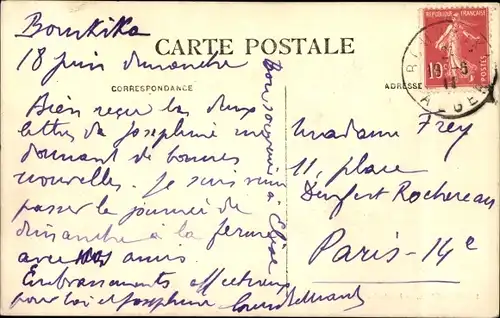 Bourkika
CARTE POSTALE
18 juin dimanche
CORRESPONDANCE
ADRESSE
Bien reçu les deux
lettres de Josephine me
donnant de bonnes
nouvelles. Je suis venu
passer la journée de
dimanche à la ferme
avec amis
Embrassements affectueux
pour toi et Josephine
Bon souvenir à
Madame Frey
11, place
Denfert Rochereau
Paris-14e
REPUBLIQUE FRANÇAISE
10
POSTES
ALGER